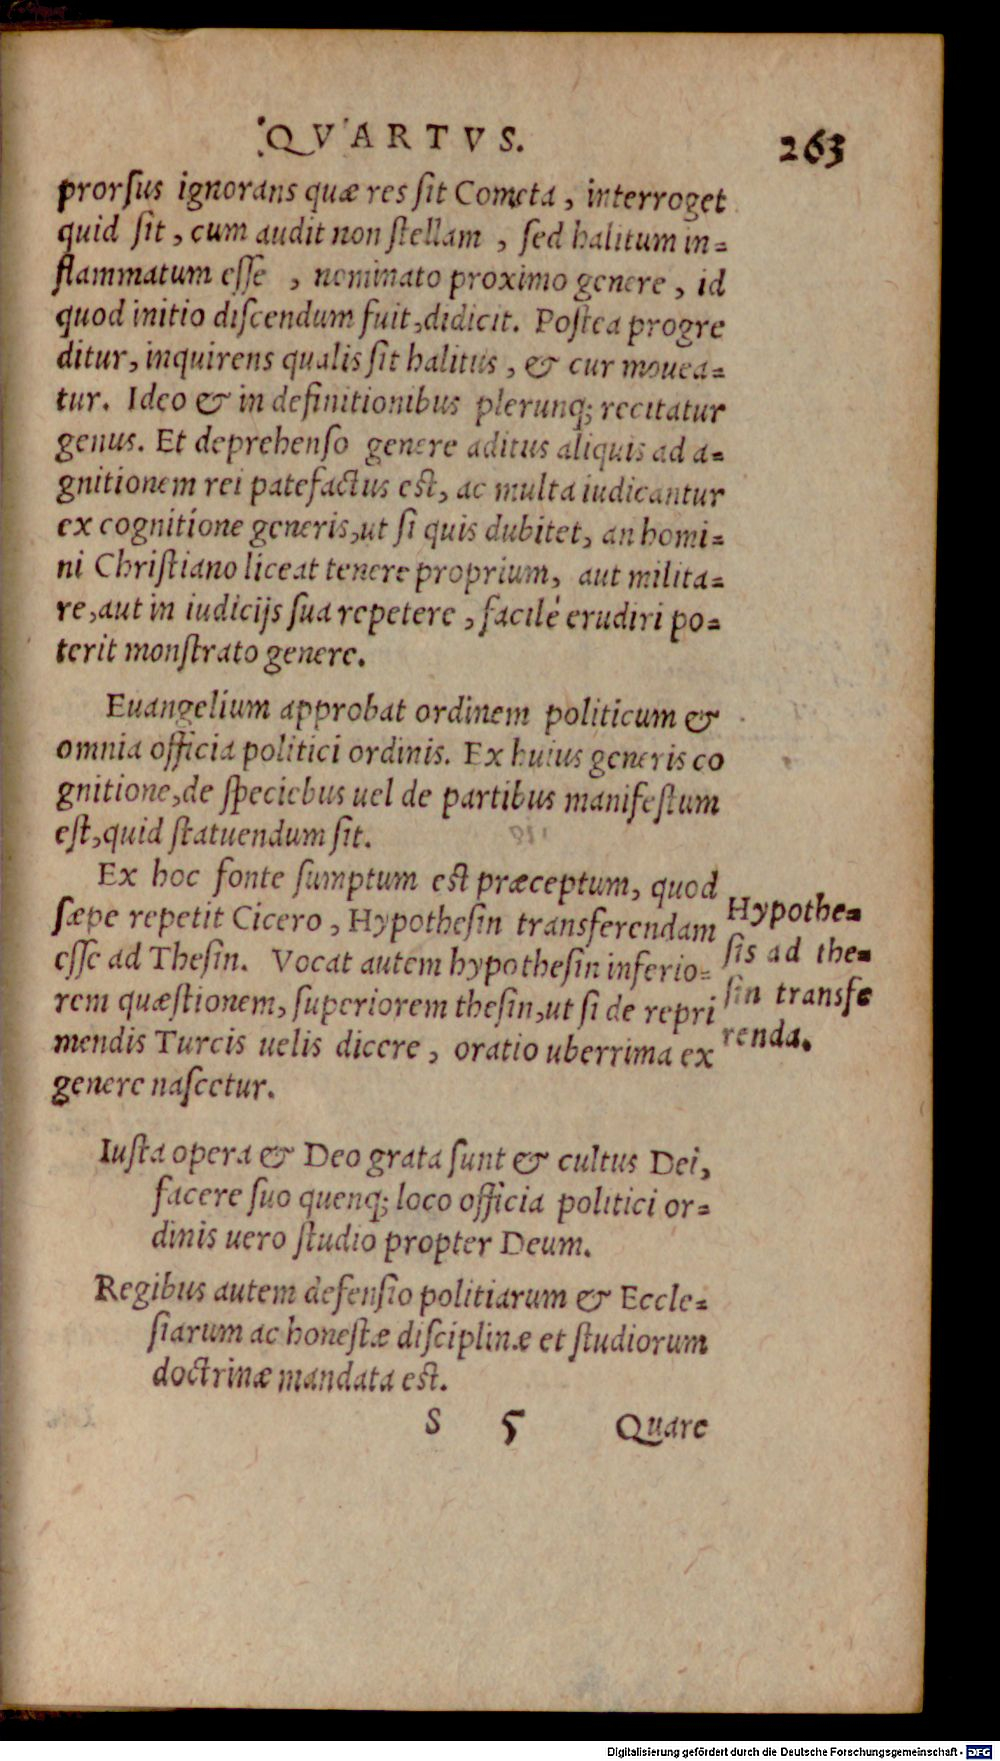 QVARTVS. 263
prorſus ignorans quæ res ſit Cometa, interroget
quid ſit, cum audit non ſtellam, ſed halitum in=
flammatum eſſe, nominato proximo genere, id
quod initio diſcendum fuit, didicit. Poſtea progre
ditur, inquirens qualis ſit halitus, & cur mouea=
tur. Ideo & in definitionibus plerunq; recitatur
genus. Et deprehenſo genere aditus aliquis ad a=
gnitionem rei patefactus eſt, ac multa iudicantur
ex cognitione generis, ut ſi quis dubitet, an homi=
ni Chriſtiano liceat tenere proprium, aut milita=
re, aut in iudicijs ſua repetere, facilé erudiri po=
terit monſtrato genere.
Euangelium approbat ordinem politicum &
omnia officia politici ordinis. Ex huius generis co
gnitione, de ſpeciebus uel de partibus manifeſtum
eſt, quid ſtatuendum ſit.
Ex hoc fonte ſumptum eſt præceptum, quod
ſæpe repetit Cicero, Hypotheſin transferendam
eſſe ad Theſin. Vocat autem hypotheſin inferio=
rem quæſtionem, ſuperiorem theſin, ut ſi de repri
mendis Turcis uelis dicere, oratio uberrima ex
genere naſcetur.
Hypothe=
ſis ad the=
ſin transfe
renda.
Iuſta opera & Deo grata ſunt & cultus Dei,
facere ſuo quenq; loco officia politici or=
dinis uero ſtudio propter Deum.
Regibus autem defenſio politiarum & Eccle=
ſiarum ac honeſtæ diſciplinæ et ſtudiorum
doctrinæ mandata eſt.
S 5 Quare
Digitalisierung gefördert durch die Deutsche Forschungsgemeinschaft - DFG